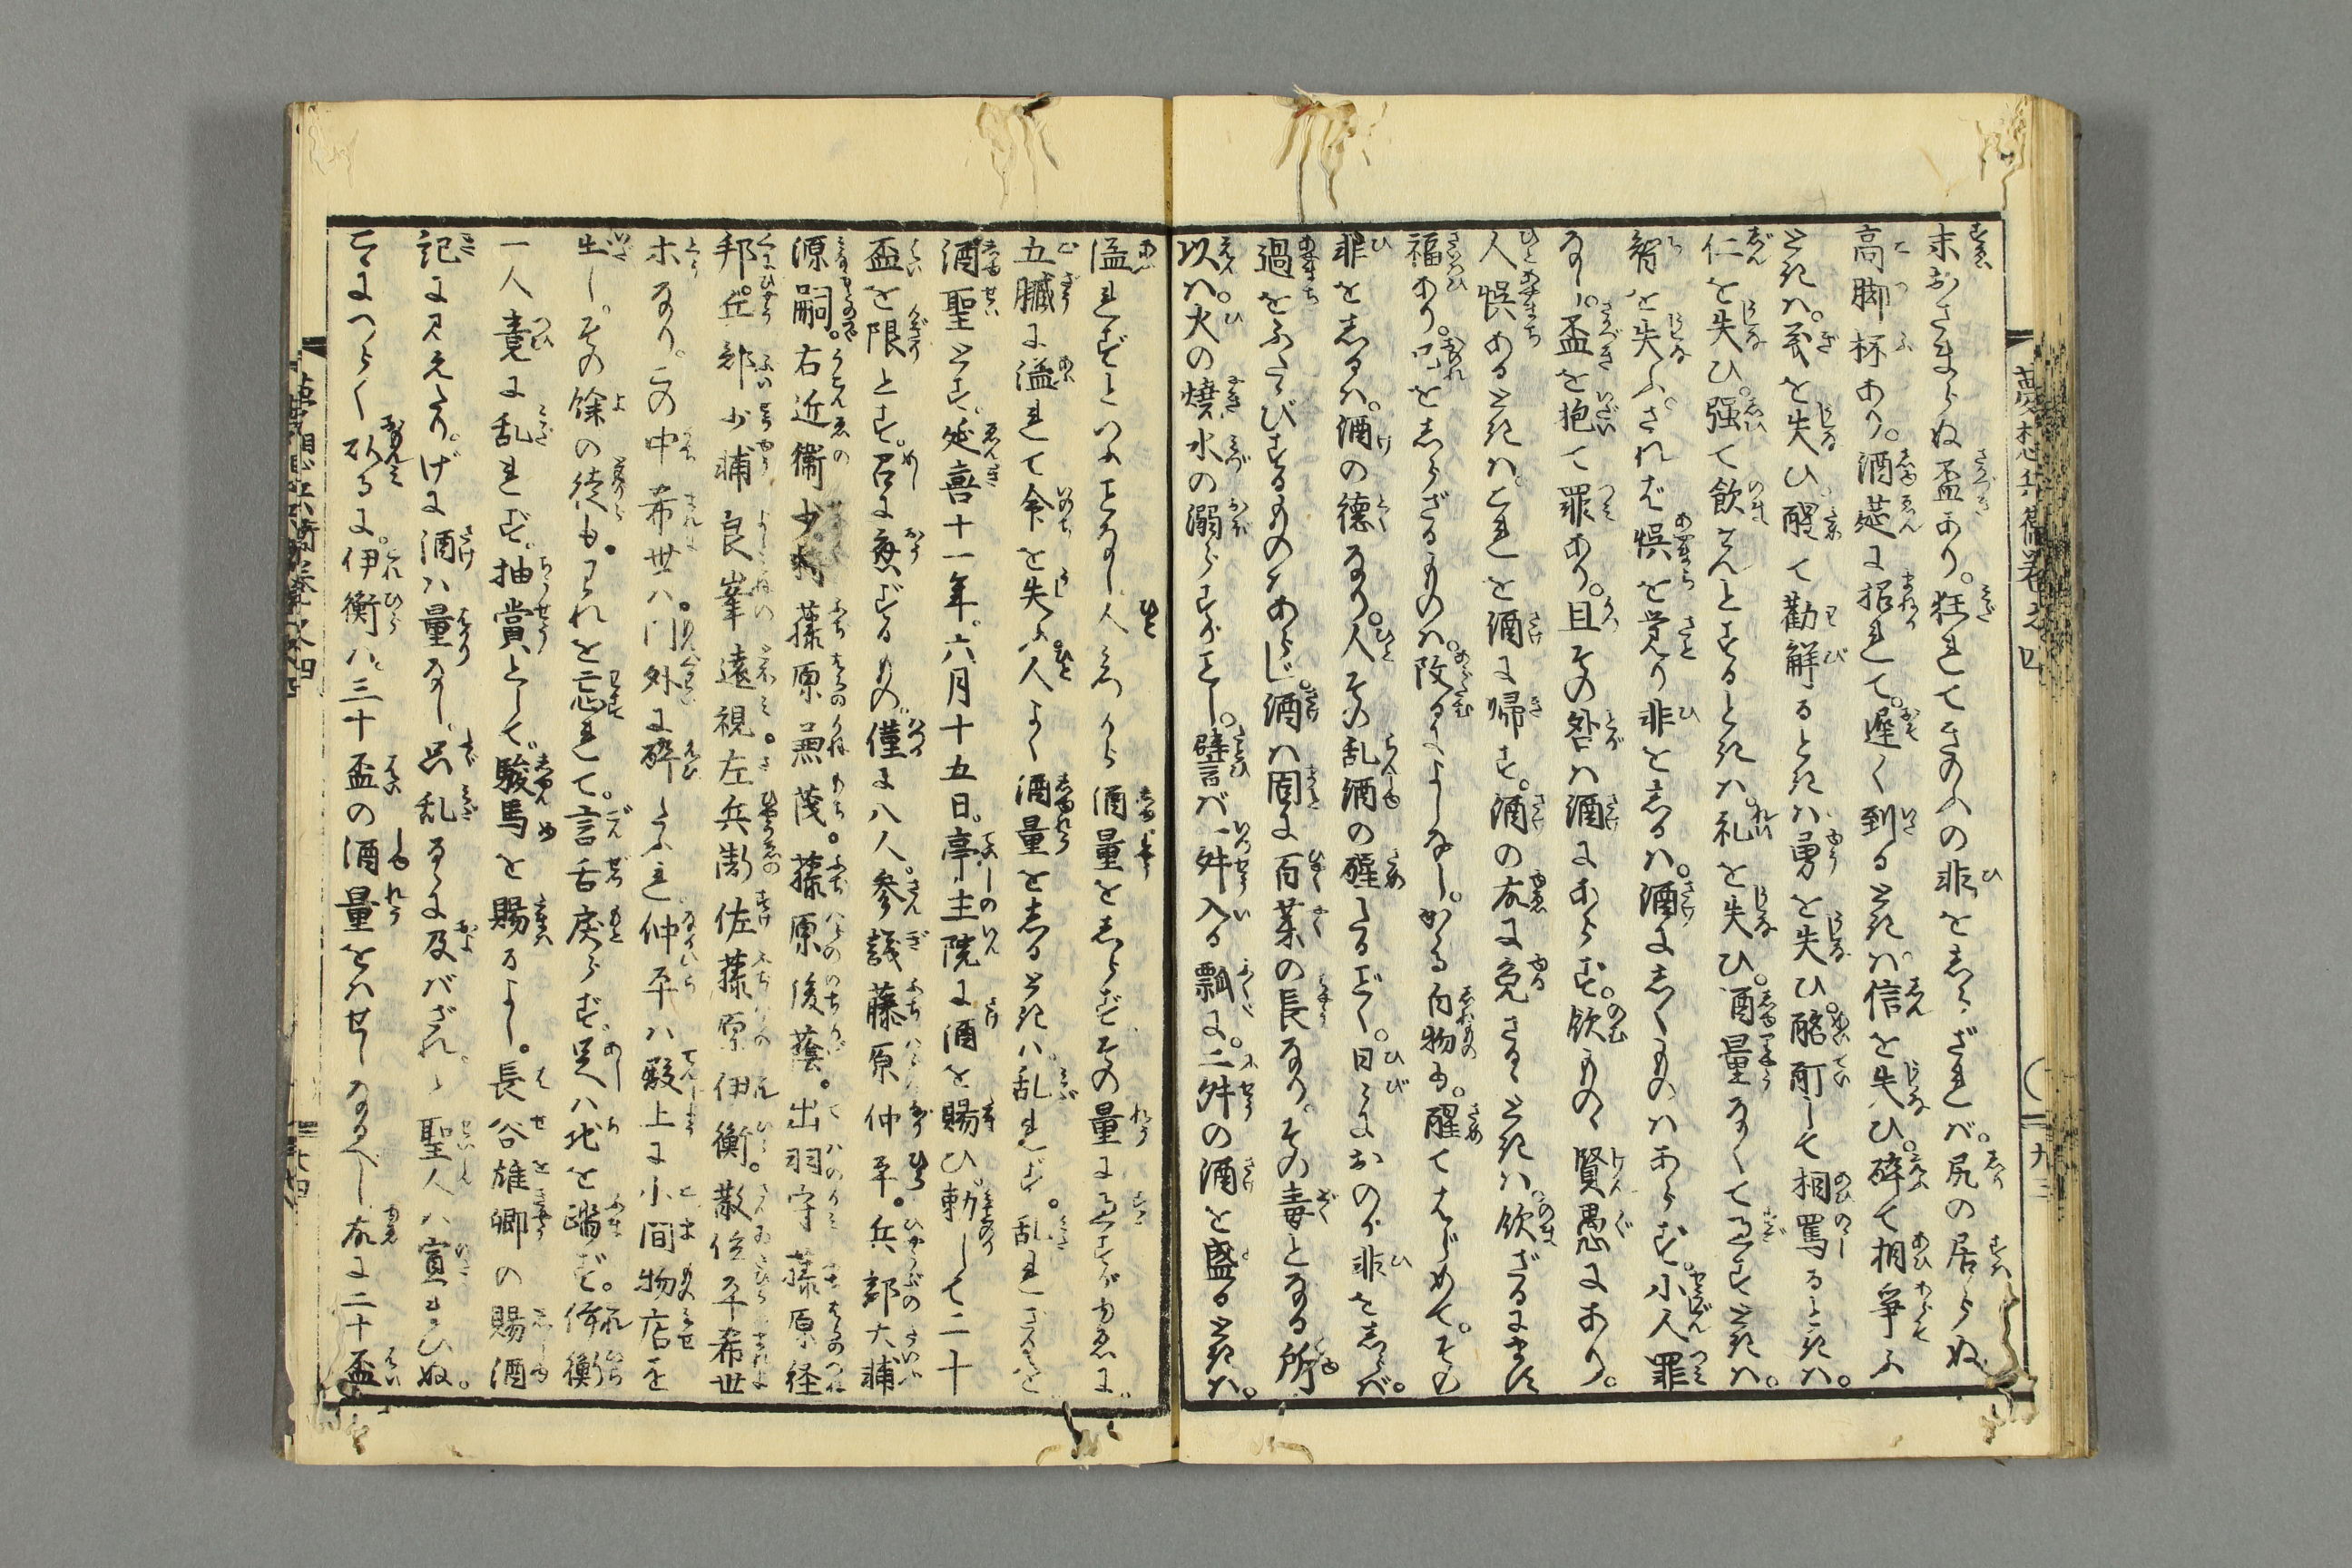 夢想兵衛巻之四 九三
末おさまらぬ盃あり。狂れてきのふの非をしらざれば。尻の居らぬ
高脚杯あり。酒莚に招れて。遅く到るときは。信を失ひ。酔て相争ふ
ときは。義を失ひ醒て勧解るときは勇を失ひ。酩酊して相罵るときは。
仁を失ひ。強て飲せんとするときは。礼を失ひ。酒量なくて過すときは。
智を失ふ。されば悞を覚り非をしるは。酒にしくものはあらず。小人罪
なし。盃を抱て罪あり。且その咎は酒にあらず。飲ものゝ賢愚にあり。
人悞あるときは。これを酒に帰す。酒の故に免さるゝときは。飲ざるにます
福あり。己をしらざるものは。改るによしなし。かゝる白物も。醒てはじめて。そも
非をしるは。酒の徳なり。人その乱酒の醒たるごとく。日々におのが非をしらば。
過をふたゝびするものあらじ。酒は固に百薬の長なり。その毒となる所
以は。火の焼水の溺らすがごとし。譬ば一舛入る瓢に。二舛の酒を盛るときは。
溢れずといふことなし人みづから酒量をしらずその量に過すがゆゑに。
五臓に溢れて命を失ふ。人よく酒量をしるときは。乱れず。乱れざるを
酒聖とす。延喜十一年。六月十五日。亭主院に酒を賜ひ。勅して二十
盃を限とす。召に応ずるもの。僅に八人。参議藤原仲平。兵部大輔
源嗣。右近衛少将藤原兼茂。藤原後蔭。出羽守藤原経
邦。兵部少輔良峯遠視左兵衛佐藤原伊衡。散位平希世
ホなり。この中希世は。門外に酔たふれ仲平は殿上に小間物店を
出し。その餘の徒も。われを忘れて。言舌戻らず。足は地を踏ず。伊衡
一人竟に乱れず。抽賞として。駿馬を賜るよし。長谷雄卿の賜酒
記に見えたり。げに酒は量なし。只乱るゝに及ばざれ。と聖人は宣ひぬ。
こゝによく巩るに。伊衡は。三十盃の酒量をはせしなるべし故に二十盃
夢想兵衛巻之四 九四